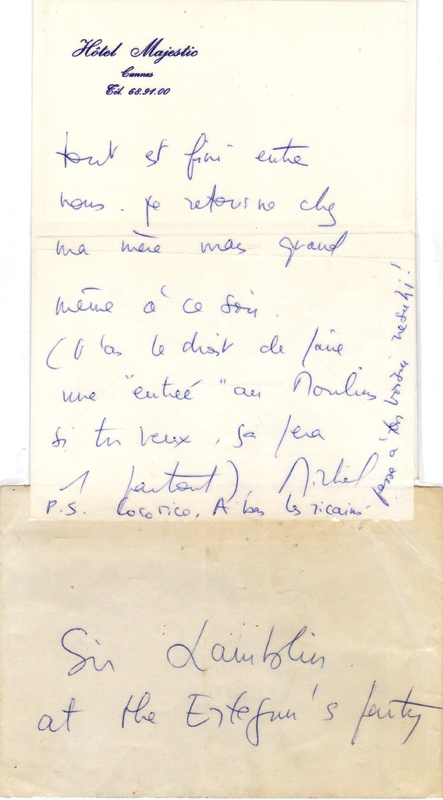 Hôtel Majestic
Cannes
Tél. 68.91.00
tout est fini entre
nous. je retourne chez
ma mère mais quand
même à ce soir.
(t'as le droit de faire
une "entrée" au Moulin
si tu veux, ça fera
1 partout) Michel
P.S. Cocorico, A bas les ricains
passe à ton voisin
Sir Lamblin
at the Ertegun's party